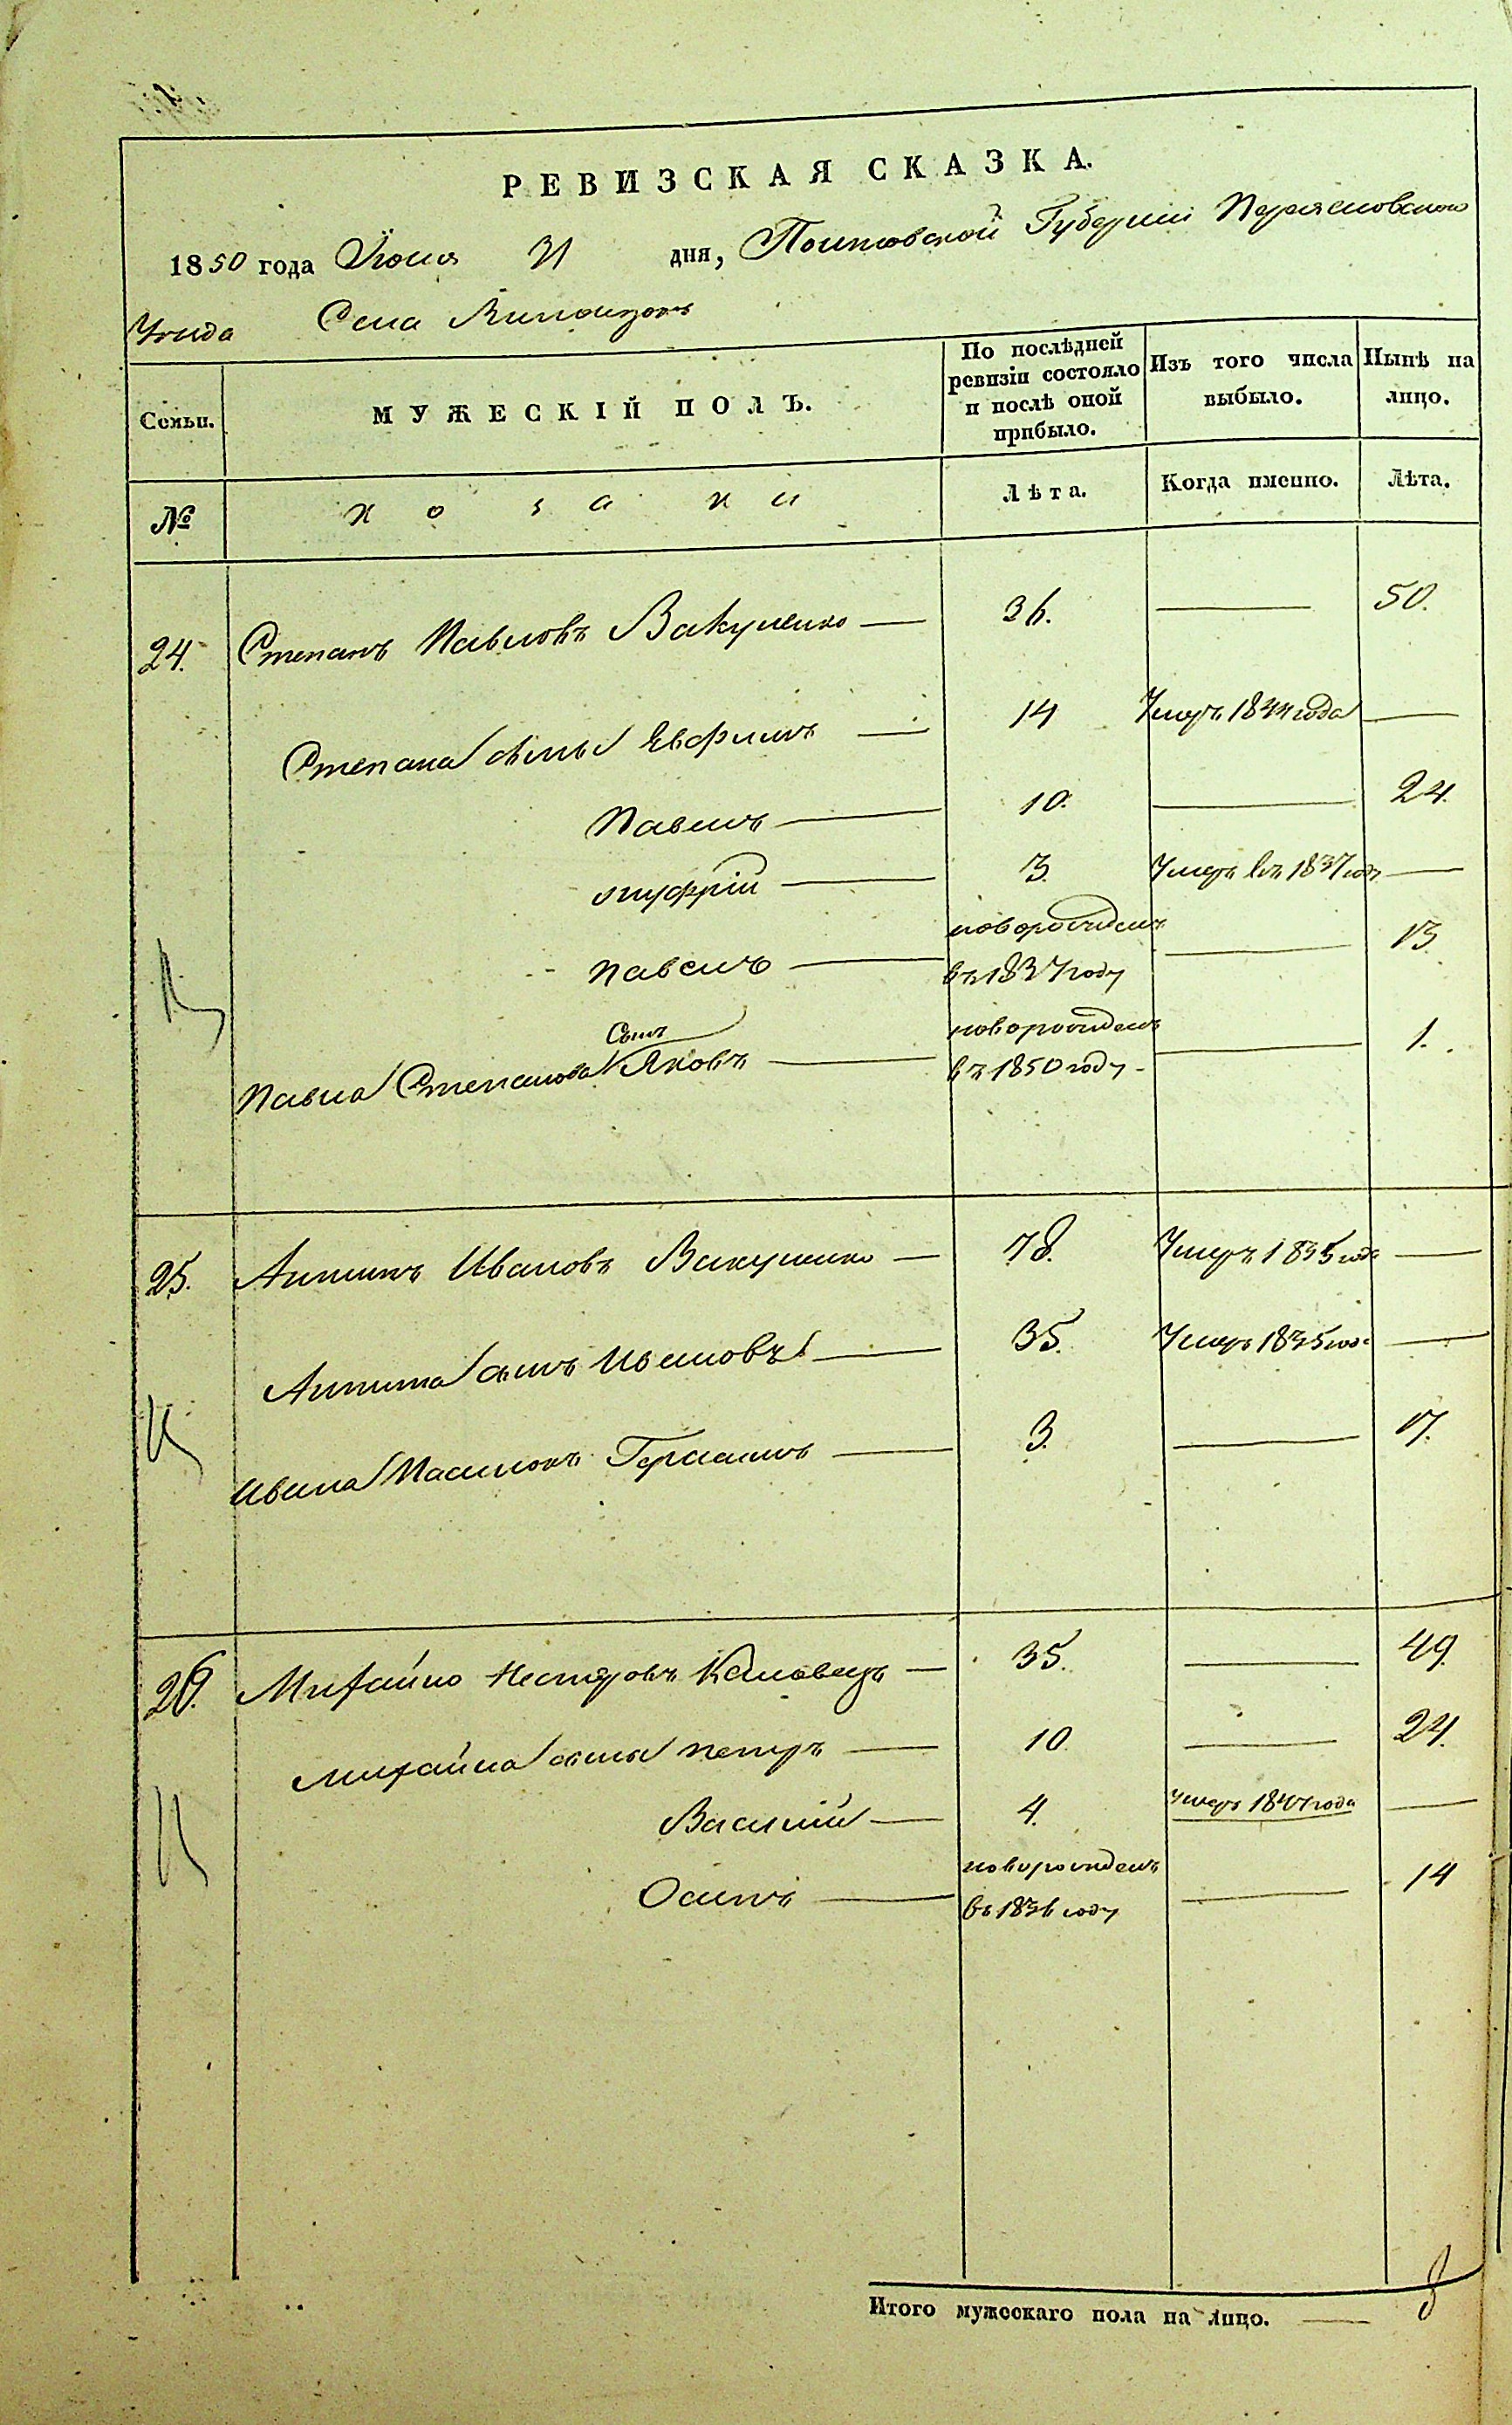 РЕВИЗСКАЯ СКАЗКА.
1850 года Июня 31 дня, Полтовской Губерніи Переясловского
Уезда Села
Семьи.
МУЖЕСКІЙ ПОЛЪ.
По послѣдней ревизіи состояло и послѣ оной прибыло.
Изъ того числа выбыло.
Нынѣ на лицо.
№
козаки
Лѣта.
Когда именно.
Лѣта.
24. Степанъ Павловъ Вакуленко — 36. — 50.
Степана сыны Евфимъ — 14 Умеръ 1844 года —
Павелъ — 10. — 24.
Ануфрій — 3. Умеръ въ 1837 годѣ —
Павелъ — новорожденъ въ 1837 году — 13
Павла Степанова Сынъ Яковъ — новорожденъ въ 1850 году — 1.
25. Антипъ Ивановъ Вакуленко — 78. Умеръ 1835 года —
Антипа сынъ — 35. Умеръ 1835 года —
Ивана Герасимъ — 3. — 17.
26. Михайло Нестеровъ — 35. — 49.
Михайла сыны Петръ — 10 — 24.
Василій — 4. Умеръ 1847 года —
Осипъ — новорожденъ въ 1836 году — 14
Итого мужескаго пола на лицо. — 8